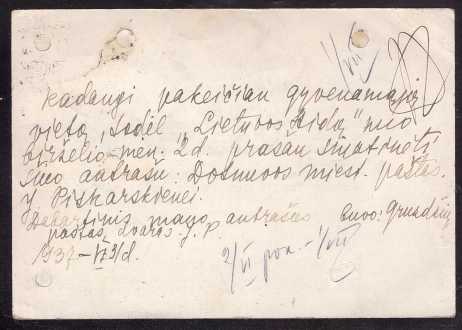 1/VII
Kadangi pakeičiau gyvenamąją
vietą, todėl „Lietuvos Aidą" nuo
birželio men. 2 d. prašau siuntinėti
šiuo adrašu: Dotnuvos miest. paštas
J. Piskarskienei.
Dabartinis mano antrašas buvo: Gruzdžių
paštas, dvaras J. P.
1937–VI 3/d.
2/VI pon. – 1/VII